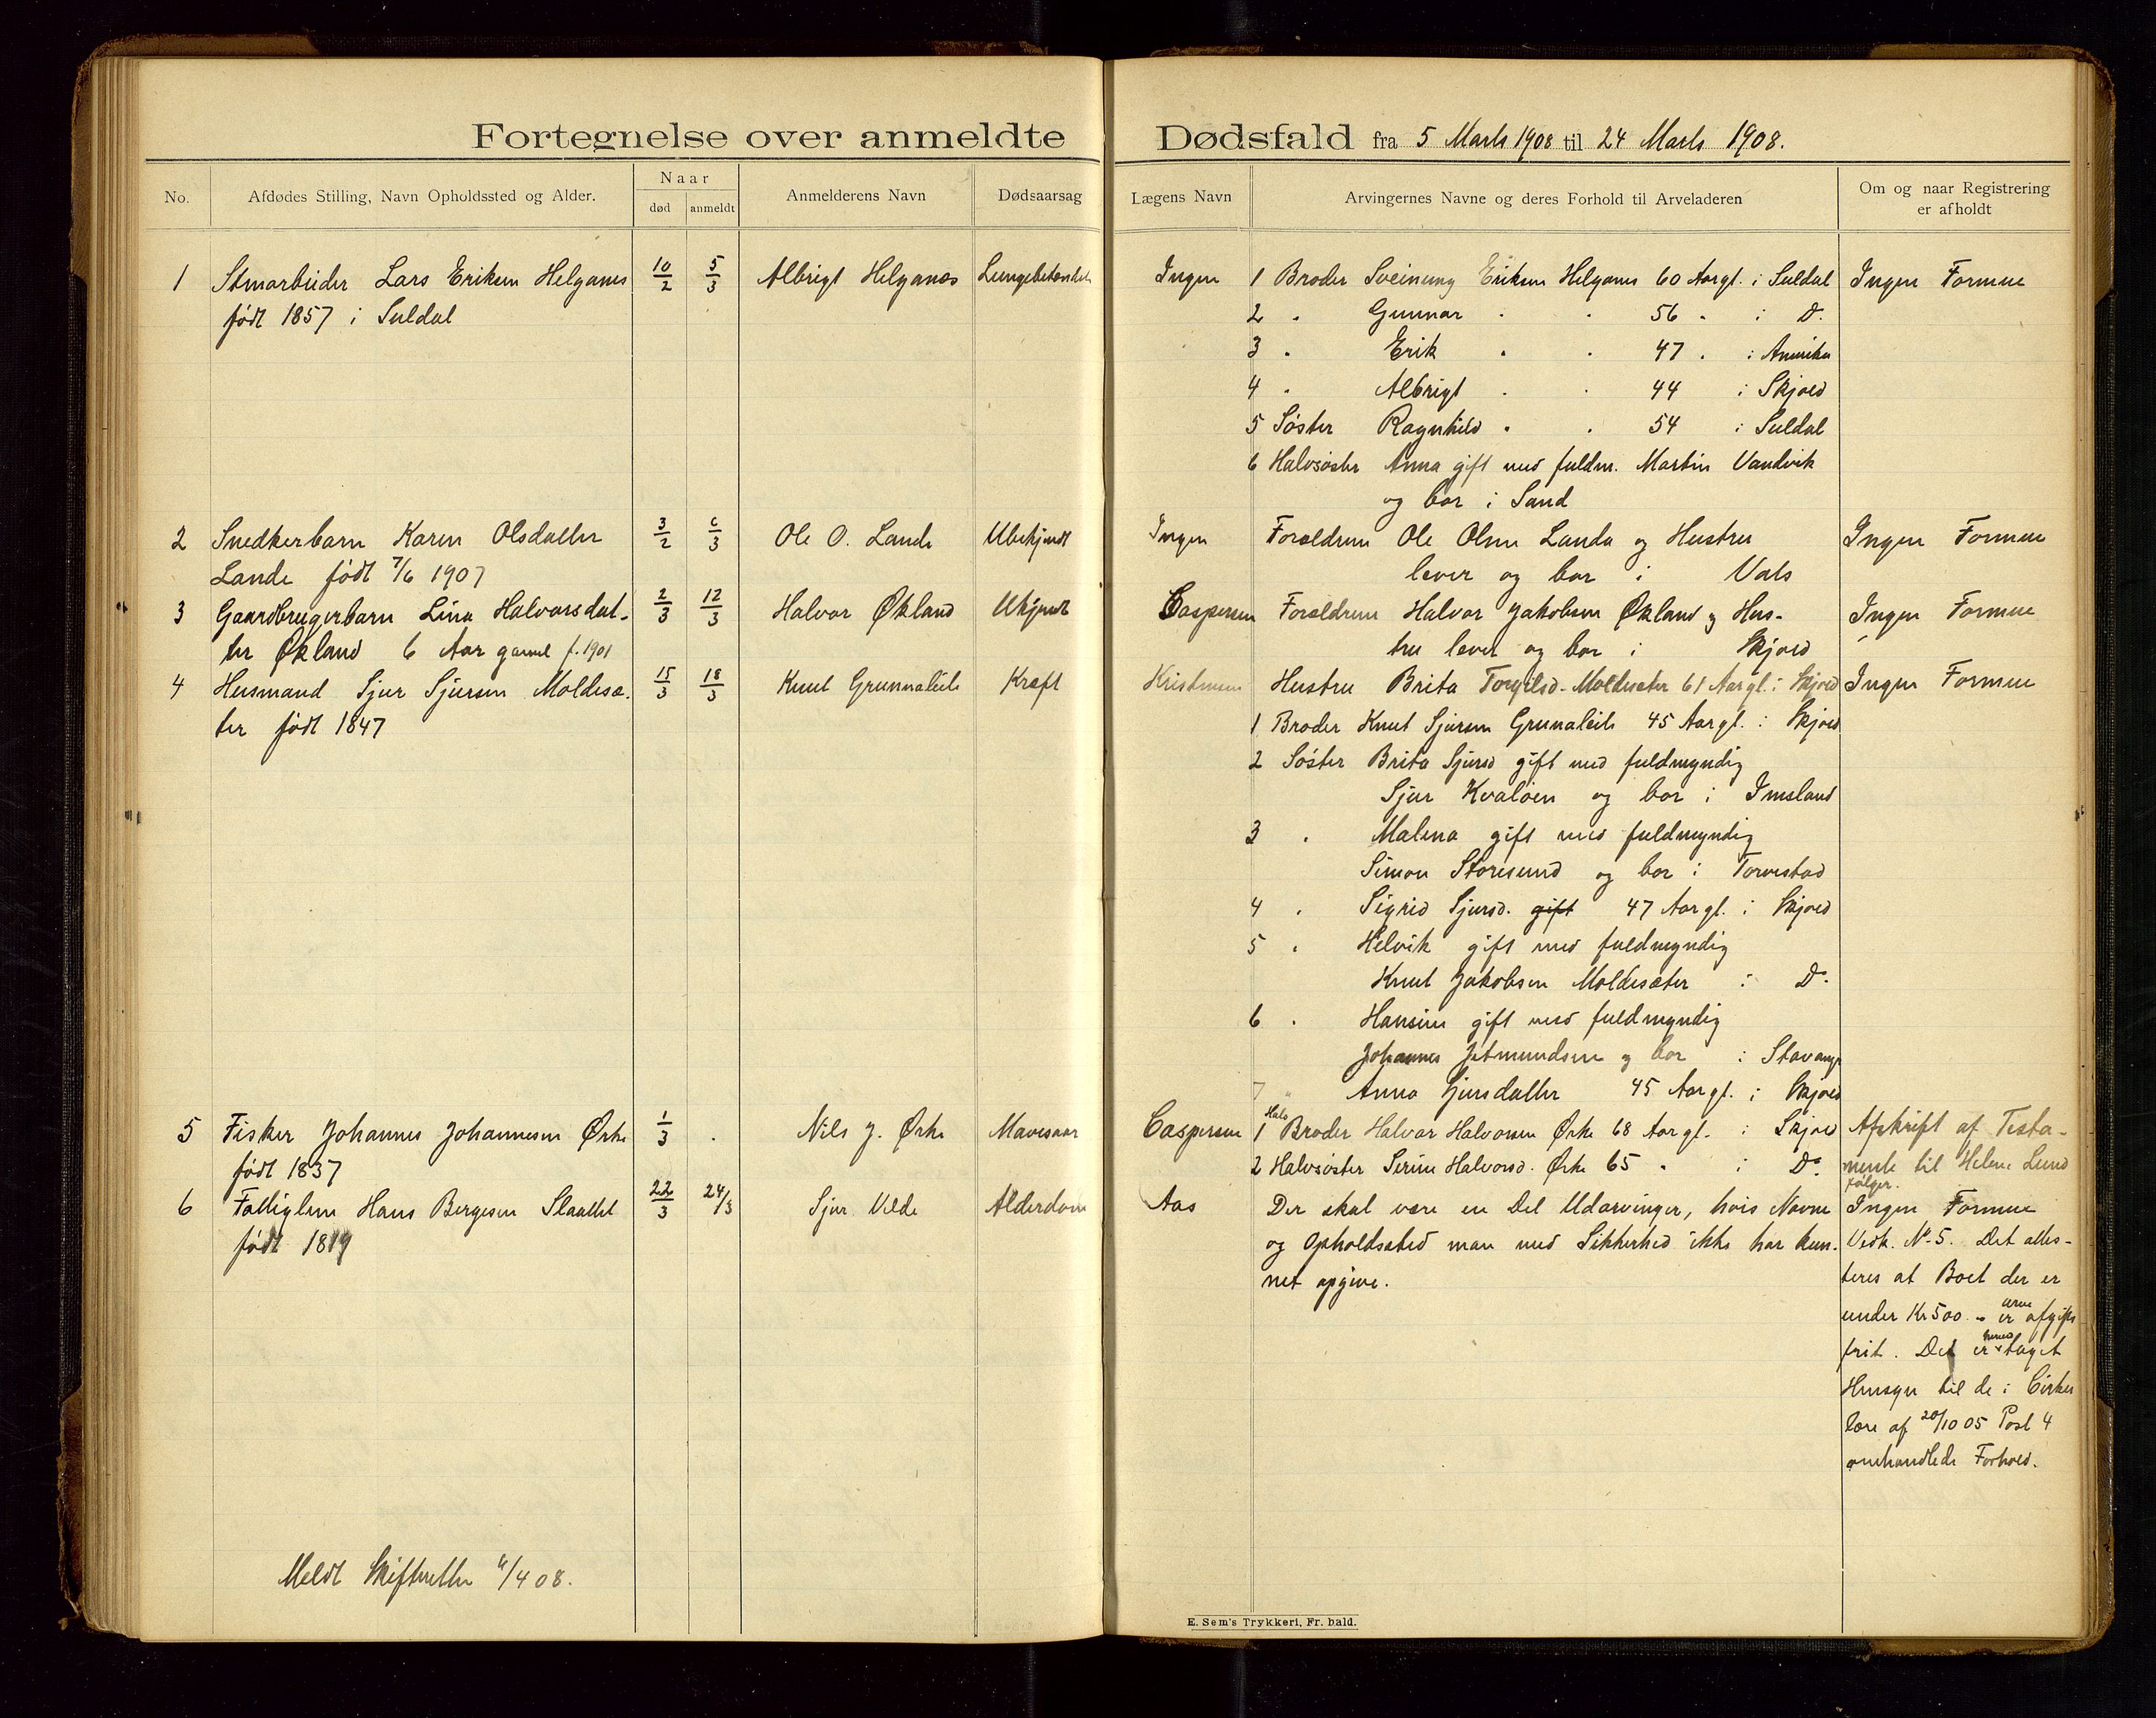 Fortegnelse over anmeldte Dødsfald fra 5 Marts 1908 til 24 Marts 1908.
No.
Afdødes Stilling, Navn Opholdssted og Alder.
Naar
død
anmeldt
Anmelderens Navn
Dødsaarsag
Lægens Navn
Arvingernes Navne og deres Forhold til Arveladeren
Om og naar Registrering
er afholdt
1 Stenarbeider Lars Eriksen Helganes 10/2 5/3 Albrigt Helganes Lungebetændelse Ingen 1 Broder Sveinung Eriksen Helganes 60 Aar gl. i Suldal Ingen Formue
født 1857 i Suldal 2 " Gunnar " " 56 " i Do.
3 " Erik " " 47 " i Amerika
4 " Albrigt " " 44 i Skjold
5 Søster Ragnhild " " 54 i Suldal
6 Halvsøster Anna gift med fuldm. Martin Vandvik
og bor i Sand
2 Snedkerbarn Karen Olsdatter 3/2 6/3 Ole O. Lande Ubekjendt Ingen Forældrene Ole Olsen Lande og Hustru Ingen Formue
Lande født 7/6 1907 lever og bor i Vats
3 Gaardbrugerbarn Lina Halvorsdat- 2/3 12/3 Halvor Økland Ukjendt Caspersen Forældrene Halvor Jakobsen Økland og Hus- Ingen Formue
ter Økland 6 Aar gammel f. 1901 tru lever og bor i Skjold
4 Husmand Sjur Sjursen Moldesæ- 15/3 18/3 Knut Grunnaleite Kræft Kristensen Hustru Brita Torgilsd. Moldesæter 61 Aar gl. i Skjold Ingen Formue
ter født 1847 1 Broder Knut Sjursen Grunaleite 45 Aar gl. i Skjold
2 Søster Brita Sjursd gift med fuldmyndig
Sjur Kvaløen og bor i Imsland
3 " Malena gift med fuldmyndig
Simon Storesund og bor i Torvestad
4 " Sigrid Sjursd. gift 47 Aar gl. i Skjold
5 " Helvik gift med fuldmyndig
Knut Jakobsen Moldesæter i Do.
6 " Hansine gift med fuldmyndig
Johannes Jetmundsen og bor i Stavanger
7 " Anna Sjursdatter 45 Aar gl. i Skjold
5 Fisker Johannes Johannesen Ørke 1/3 " Nils J. Ørke Mavesaar Caspersen 1 Halv Broder Halvor Halvorsen Ørke 68 Aar gl. i Skjold Afskrift af Testa-
født 1837 2 Halvsøster Serine Halvorsd. Ørke 65 " i Do. mente til Helene Lund
følger.
6 Fattiglem Hans Bergesen Slaattet 22/3 24/3 Sjur Velde Alderdom Aas Der skal være en Del Udarvinger, hvis Navne Ingen Formue
født 1819 og Opholdssted man med Sikkerhed ikke har kun- Vedk. No. 5. Det attes-
net opgive. teres at Boet der er
under Kr 500 - er arve afgifts
frit. Det er herved taget
Hensyn til de i Cirku
lære af 20/10 05 Post 4
omhandlede Forhold.
Meldt Skifteretten 6/4 08.
E. Sem's Trykkeri, Fr. hald.